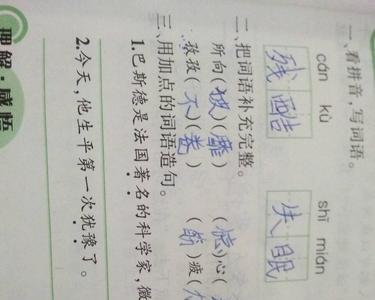 一、看拼音，写词语。
cán kù
shī mián
残酷
失眠
二、把词语补充完整。
所向(披)(靡)
(
)心(
孜孜(不)(倦)
(筋)疲(
三、用加点的词语造句。
1.巴斯德是法国著名的科学家，微
2.今天，他生平第一次犹豫了。
理解·感悟